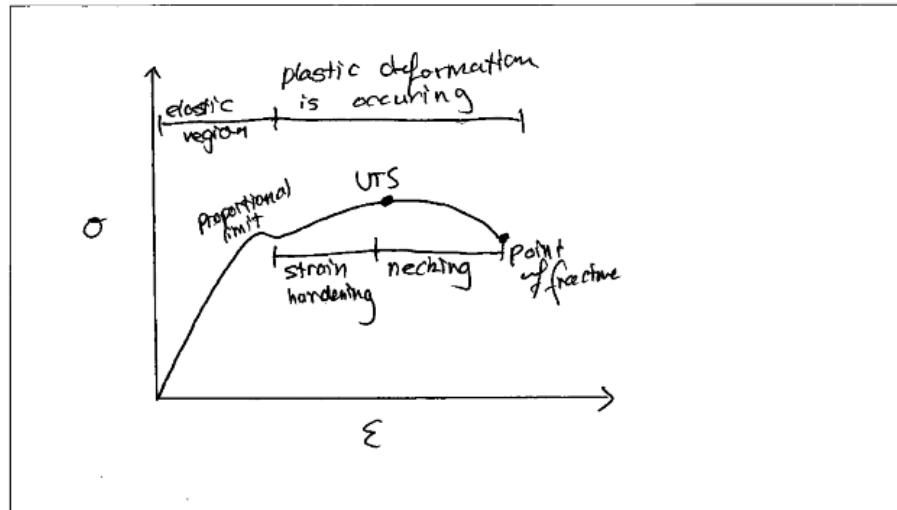 plastic deformation
is occuring
elastic
region
UTS
proportional
limit
σ
strain
hardening
necking
point
of fracture
ε